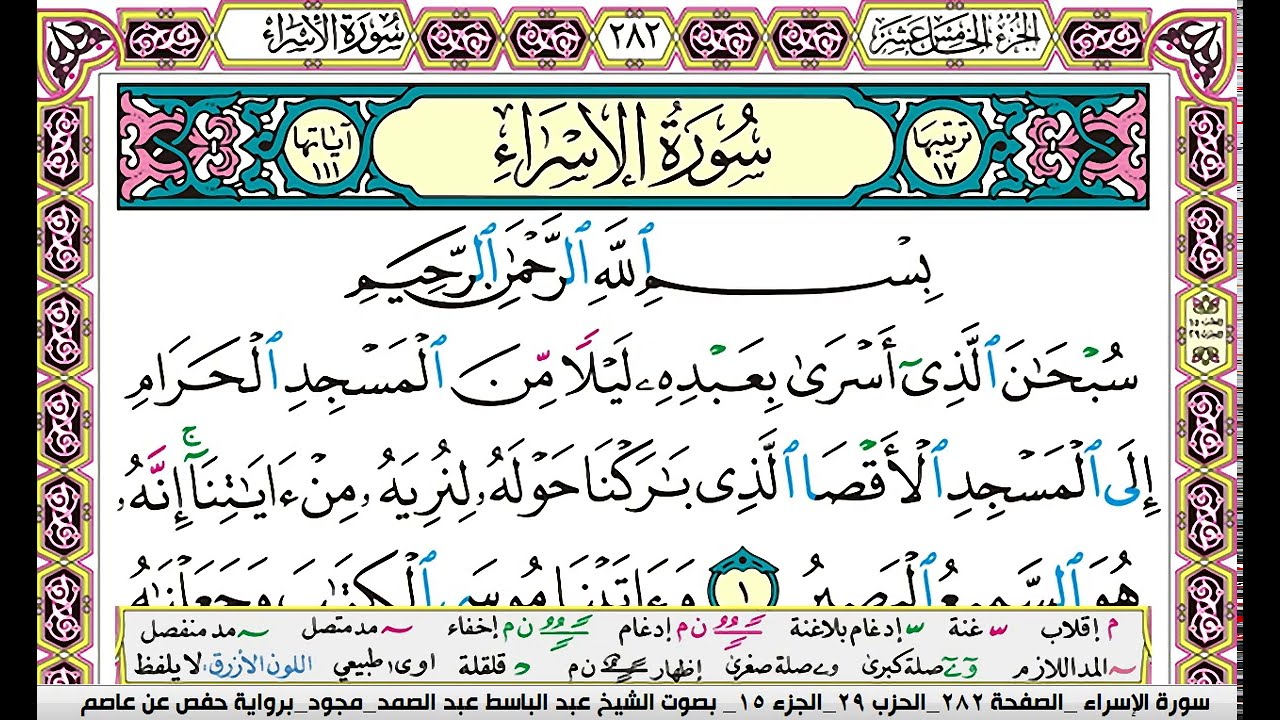 الجزء الخامس عشر ٢٨٢ سورة الإسراء
ترتيبها ١٧ سُورَةُ الإِسْرَاءِ آياتها ١١١
بِسْمِ ٱللَّهِ ٱلرَّحْمَٰنِ ٱلرَّحِيمِ
سُبْحَٰنَ ٱلَّذِىٓ أَسْرَىٰ بِعَبْدِهِۦ لَيْلًا مِّنَ ٱلْمَسْجِدِ ٱلْحَرَامِ
إِلَى ٱلْمَسْجِدِ ٱلْأَقْصَا ٱلَّذِى بَٰرَكْنَا حَوْلَهُۥ لِنُرِيَهُۥ مِنْ ءَايَٰتِنَآ ۚ إِنَّهُۥ
هُوَ ٱلسَّمِيعُ ٱلْبَصِيرُ ١ وَءَاتَيْنَا مُوسَى ٱلْكِتَٰبَ وَجَعَلْنَٰهُ
م إقلاب غنة إدغام بلاغنة ن م إدغام ن م إخفاء مد متصل مد منفصل
المد اللازم صلة كبرى صلة صغرى إظهار ن م قلقلة اوى طبيعي اللون الأزرق: لا يلفظ
سورة الإسراء _الصفحة ٢٨٢_الحزب ٢٩_الجزء ١٥_ بصوت الشيخ عبد الباسط عبد الصمد_مجود_برواية حفص عن عاصم